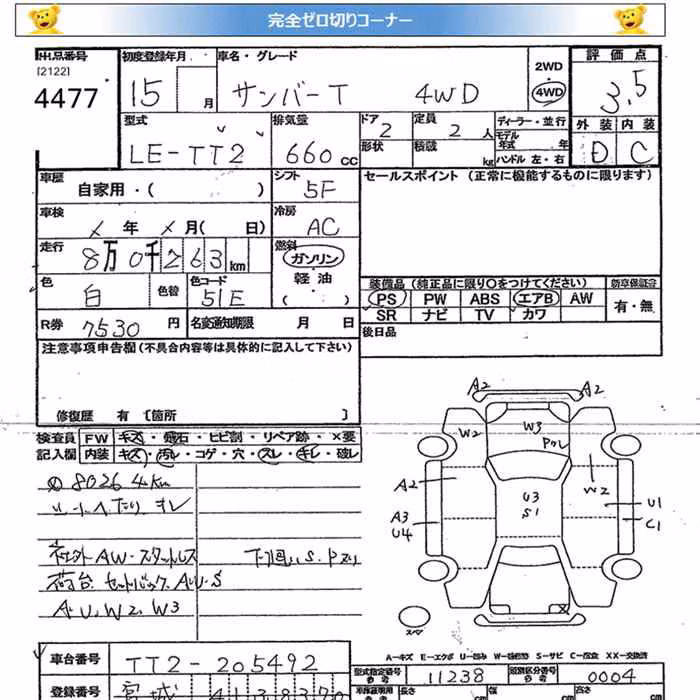 完全ゼロ切りコーナー
出品番号 初度登録年月 車名・グレード 2WD 評価点
[2122]
4477 15 月 サンバーT 4WD 4WD 3.5
型式 排気量 ドア 定員 ディーラー・並行 外装 内装
LE-TT2 660cc 2 2人 モデル年式 年 D C
形状 積載 kg ハンドル 左・右
車歴 自家用・( ) シフト 5F セールスポイント (正常に機能するものに限ります)
車検 X年 X月( 日) 冷房 AC
走行 8万0千263km 燃料 ガソリン
軽油
色 白 色替 色コード 51E ( )
装備品 (純正品に限り○をつけてください)
PS PW ABS エアB AW 有・無
SR ナビ TV カワ
R券 7530円 名変通知期限 月 日 後日品
注意事項申告欄 (不具合内容等は具体的に記入して下さい)
修復歴 有 [箇所 ]
検査員 FW キズ・飛石・ヒビ割・リペア跡・×要
記入欄 内装 キズ・汚レ・コゲ・穴・スレ・キレ・破レ
80264km
シートヘたり、キレ
社外AW・スタットレス 下廻り S.Pサビ
荷台 セットバック A.W.S
A.U.W2.W3
A2 A2
W2 W3
Pクレ
A2 W2
U3
S1
U1
A3
U4
C1
スペア
A-キズ E-エクボ U-凹み W-補修跡 S-サビ C-腐食 XX-交換済
車台番号 TT2-205492
型式指定番号 11238 類別区分番号 0004
登録番号 宮城 41 3830
長さ cm 幅 cm 高さ cm